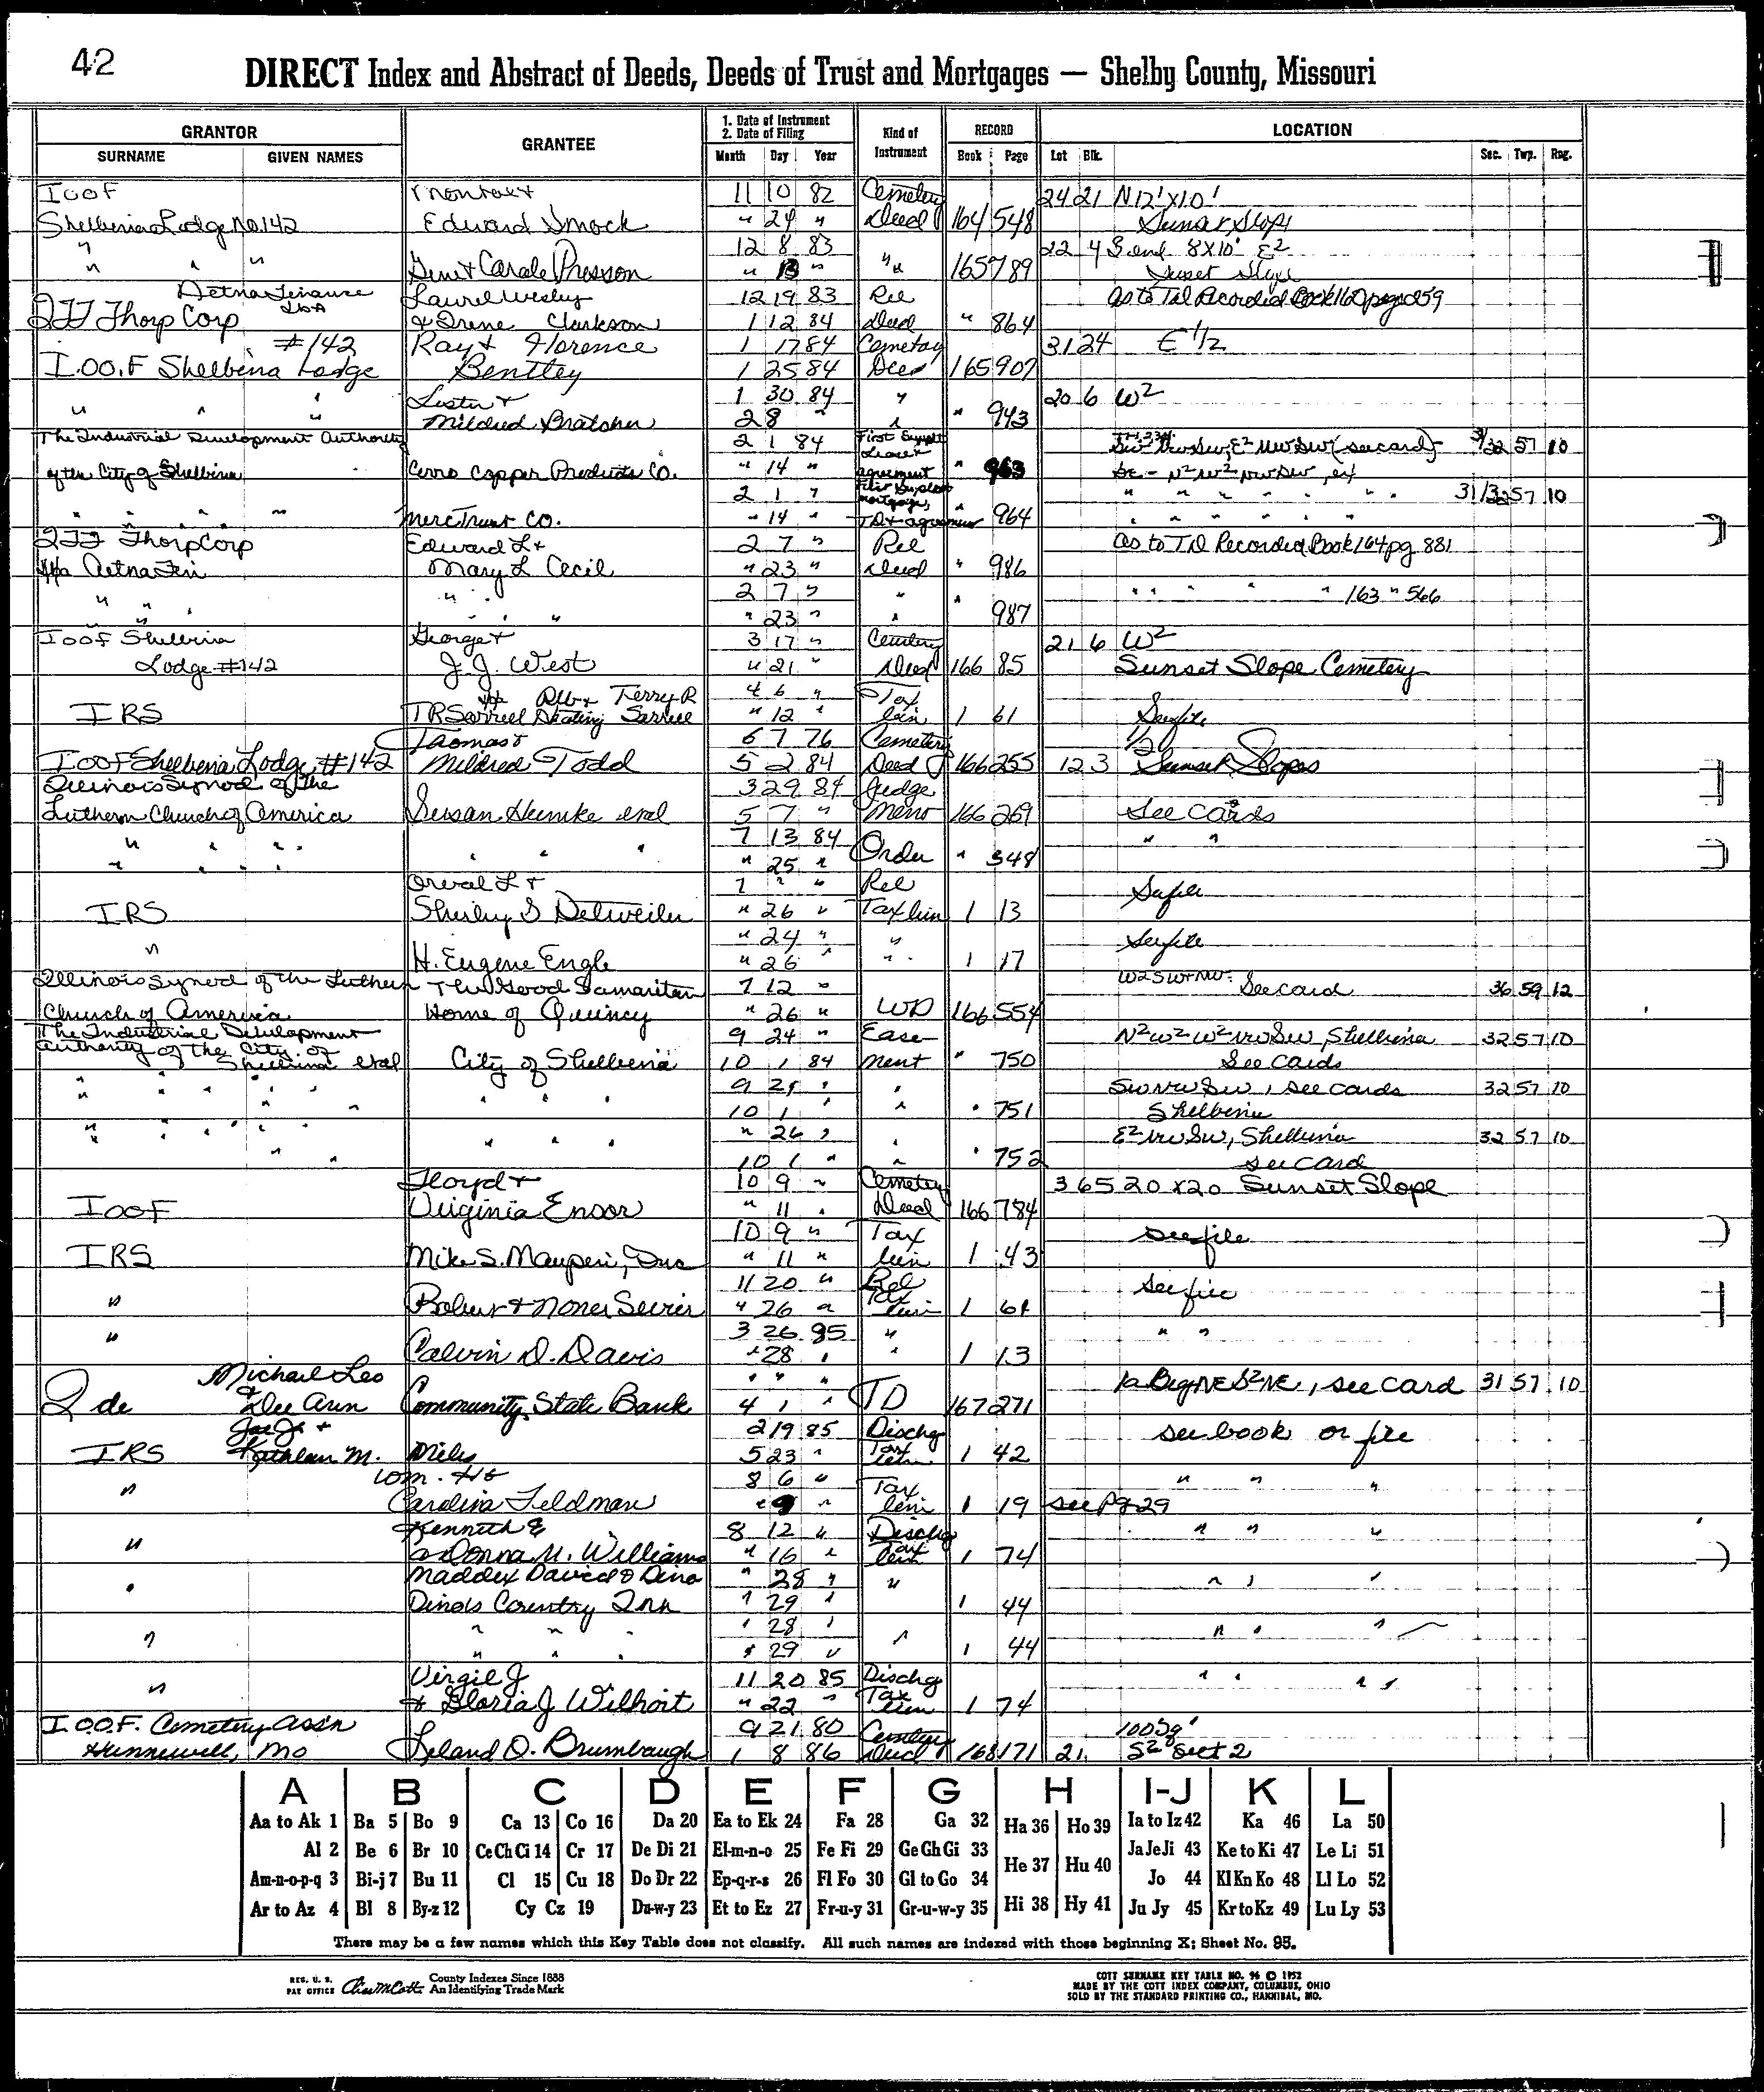 42
DIRECT Index and Abstract of Deeds, Deeds of Trust and Mortgages — Shelby County, Missouri
GRANTOR GRANTEE 1. Date of Instrument 2. Date of Filing Kind of Instrument RECORD LOCATION
SURNAME GIVEN NAMES Month Day Year Book Page Lot Blk. Sec. Twp. Rng.
IOOF 11 10 82 Cemetery 24 21 N12'X10'
Shelbina Lodge No.142 Edward Smock " 24 " Deed 164 548
" 12 8 83 22 4 S end 8X10' E2
" " " Gene & Carole Presson " 13 " " 165 789 Sunset Slope
Aetna Finance Laurel Wesley 12 19 83 Rel as to TD Recorded Book 160 page 259
ITT Thorp Corp & Irene Clarkson 1 12 84 Deed " 864
#142 Ray & Florence 1 17 84 Cemetery 31 24 E 1/2
I.OO.F Shelbina Lodge Bentley 1 25 84 Deed 165 907
Lester & 1 30 84 " 20 6 W2
" " " Mildred Bratcher 2 8 " " " 943
The Industrial Development Authority 2 1 84 First Suppl 31/32 57 10
of the City of Shelbina Cerro Copper Products Co. " 14 " agreement " 963
2 1 " 31/32 57 10
" " " " Merc Trust Co. " 14 " TD & agreement " 964
ITT Thorp Corp Edward L & 2 7 " Rel as to TD Recorded Book 164 pg 881
Aetna Fin Mary L Cecil " 23 " Deed " 986
" " " " 2 7 " " " " " " " 163 " 566
" " " " " " 23 " " 987
IOOF Shelbina George & 3 17 " Cemetery 21 6 W2
Lodge #142 J.J. West " 21 " Deed 166 85 Sunset Slope Cemetery
Terry R 4 6 " Tax
IRS TR Sarrell Heating Sarrell " 12 " lein 1 61 See file
Thomas & 6 7 76 Cemetery 1/2
IOOF Shelbina Lodge #142 Mildred Todd 5 2 84 Deed 166 255 12 3 Sunset Slopes
Illinois Synod of the 3 29 84 Judge
Lutheran Church of America Susan Humke etal 5 7 " Memo 166 269 See Cards
" " " " 7 13 84 Order " "
" " " " " " " " 25 " " 348
Orval L & 7 " " Rel See file
IRS Shirley S Detweiler " 26 " Tax lien 1 13
" " 24 " " See file
H. Eugene Engle " 26 " " 1 17
Illinois Synod of the Luthern The Good Samaritan 7 12 " See card 36 59 12
Church of America Home of Quincy " 26 " WD 166 554
The Industrial Development 9 24 " Ease- N2W2W2NWSW, Shelbina 32 57 10
Authority of the City of
Shelbina etal City of Shelbina 10 1 84 ment " 750 See Cards
" " " " 9 21 " " SWNWSW, see cards 32 57 10
" " " " " " 10 1 " " " 751 Shelbina
" " " " " 26 " E2NWSW, Shelbina 32 57 10
" " " " " 10 1 " " " 752 see card
Floyd & 10 9 " Cemetery 36 5 20 x 20 Sunset Slope
IOOF Virginia Ensor " 11 " Deed 166 784
10 9 " Tax see file
IRS Mike S. Maupin, " 11 " lien 1 43
11 20 " Rel see file
" " 26 " Tax lien 1 61
" 3 26 85 " " "
Calvin D. Davis " 28 " " 1 13
Michael Leo " " " Beg NE S2NE, see card 31 57 10
Ide & Dee Ann Community State Bank 4 1 " TD 167 271
Joe Jr & 2 19 85 Dischg see book or file
IRS Kathleen M. Miles 5 23 " Tax lein 1 42
Wm. H & 8 6 " Tax " " "
" Carolina Feldman " 9 " lein 1 19 see Pg 29
Kenneth E 8 12 " Dischg " " "
" & Donna M. Williams " 16 " Tax lein 1 74
Maddex David & Dina " 28 " " " " "
" Dinas Country Inn " 29 " 1 44
" " " " " 28 " " " " "
" " " " 29 " 1 44
Virgil J 11 20 85 Dischg " " "
" & Gloria J Wilhoit " 22 " Tax lien 1 74 " "
I.O.O.F. Cemetery Ass'n 9 21 80 Cemetery 100 Sq'
Hunnewell, Mo Leland O. Brumbaugh 1 8 86 Deed 168 171 21 S2 Sect 2
A B C D E F G H I-J K L
Aa to Ak 1 Ba 5 Bo 9 Ca 13 Co 16 Da 20 Ea to Ek 24 Fa 28 Ga 32 Ha 36 Ho 39 Ia to Iz 42 Ka 46 La 50
Al 2 Be 6 Br 10 Ce Ch Ci 14 Cr 17 De Di 21 El-m-n-o 25 Fe Fi 29 Ge Gh Gi 33 He 37 Hu 40 Ja Je Ji 43 Ke to Ki 47 Le Li 51
Am-n-o-p-q 3 Bi-j 7 Bu 11 Cl 15 Cu 18 Do Dr 22 Ep-q-r-s 26 Fl Fo 30 Gl to Go 34 Jo 44 Kl Kn Ko 48 Ll Lo 52
Ar to Az 4 Bl 8 By-z 12 Cy Cz 19 Du-w-y 23 Et to Ez 27 Fr-u-y 31 Gr-u-w-y 35 Hi 38 Hy 41 Ju Jy 45 Kr to Kz 49 Lu Ly 53
There may be a few names which this Key Table does not classify. All such names are indexed with those beginning X; Sheet No. 95.
REG. U. S. PAT OFFICE County Indexes Since 1888 An Identifying Trade Mark
COTT SURNAME KEY TABLE NO. 96 © 1952
MADE BY THE COTT INDEX COMPANY, COLUMBUS, OHIO
SOLD BY THE STANDARD PRINTING CO., HANNIBAL, MO.